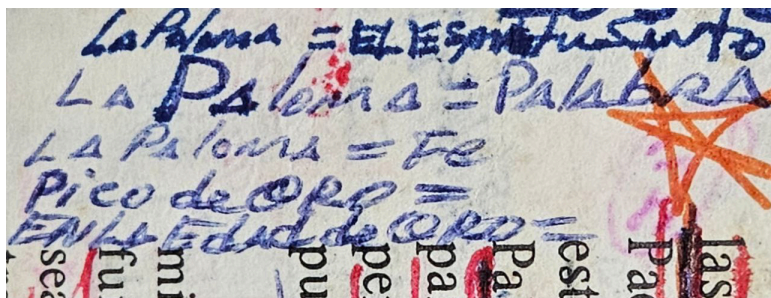 La Paloma = EL ESpiritu Santo
LA PALOMA = PALAbRA
LA PALOMA = Fe
Pico de ORO =
EN LA Edad de ORO =
las
Pac
est
Pa
pa
pe
pu
mi
fu
sea